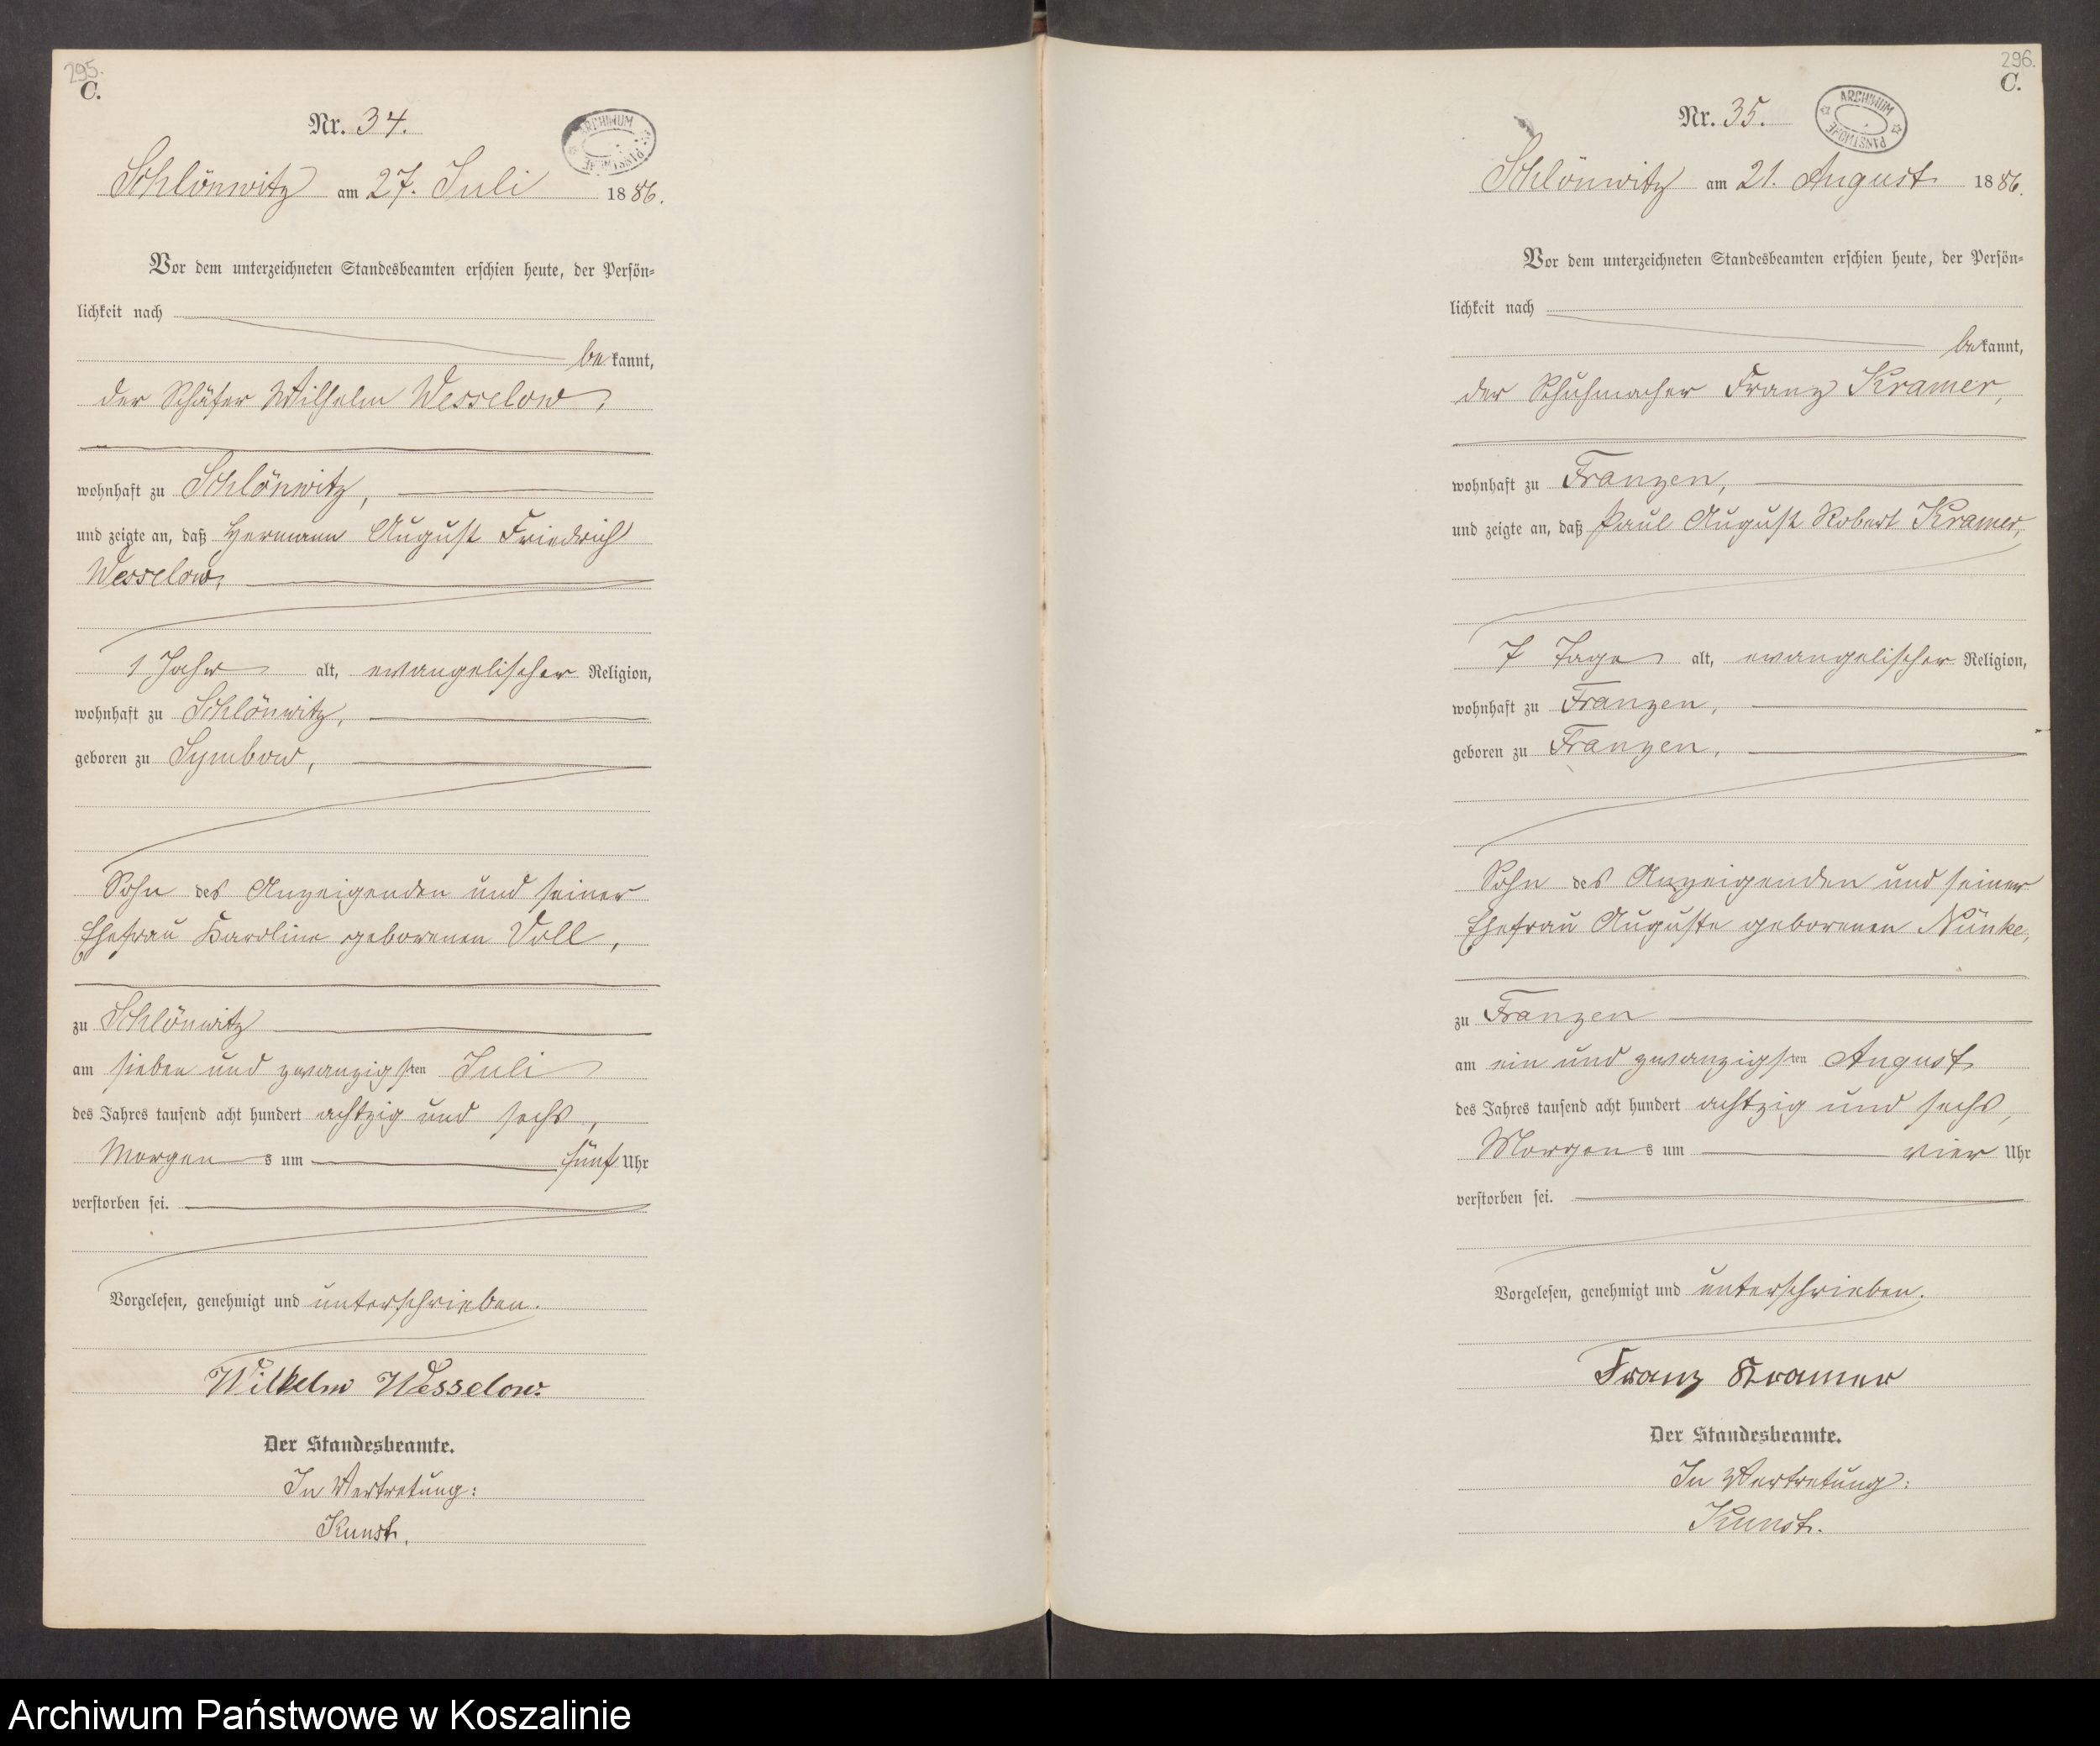 295.
C.
Nr. 34.
ARCHIWUM PAŃSTWOWE
Schlönwitz am 27. Juli 1886.
Vor dem unterzeichneten Standesbeamten erschien heute, der Persön-
lichkeit nach
bekannt,
der Schäfer Wilhelm Wesselow,
wohnhaft zu Schlönwitz,
und zeigte an, daß Hermann August Friedrich
Wesselow,
1 Jahr alt, evangelischer Religion,
wohnhaft zu Schlönwitz,
geboren zu Symbow,
Sohn des Anzeigenden und seiner
Ehefrau Karoline geborenen Voll,
zu Schlönwitz
am sieben und zwanzigsten Juli
des Jahres tausend acht hundert achtzig und sechs,
Morgens um fünf Uhr
verstorben sei.
Vorgelesen, genehmigt und unterschrieben.
Wilhelm Wesselow.
Der Standesbeamte.
In Vertretung:
Kunst.
296.
C.
Nr. 35.
ARCHIWUM PAŃSTWOWE
Schlönwitz am 21. August 1886.
Vor dem unterzeichneten Standesbeamten erschien heute, der Persön-
lichkeit nach
bekannt,
der Schuhmacher Franz Kramer,
wohnhaft zu Franzen,
und zeigte an, daß Paul August Robert Kramer,
7 Tage alt, evangelischer Religion,
wohnhaft zu Franzen,
geboren zu Franzen,
Sohn des Anzeigenden und seiner
Ehefrau Auguste geborenen Nünke,
zu Franzen
am ein und zwanzigsten August
des Jahres tausend acht hundert achtzig und sechs,
Morgens um vier Uhr
verstorben sei.
Vorgelesen, genehmigt und unterschrieben.
Franz Kramer
Der Standesbeamte.
In Vertretung:
Kunst.
Archiwum Państwowe w Koszalinie